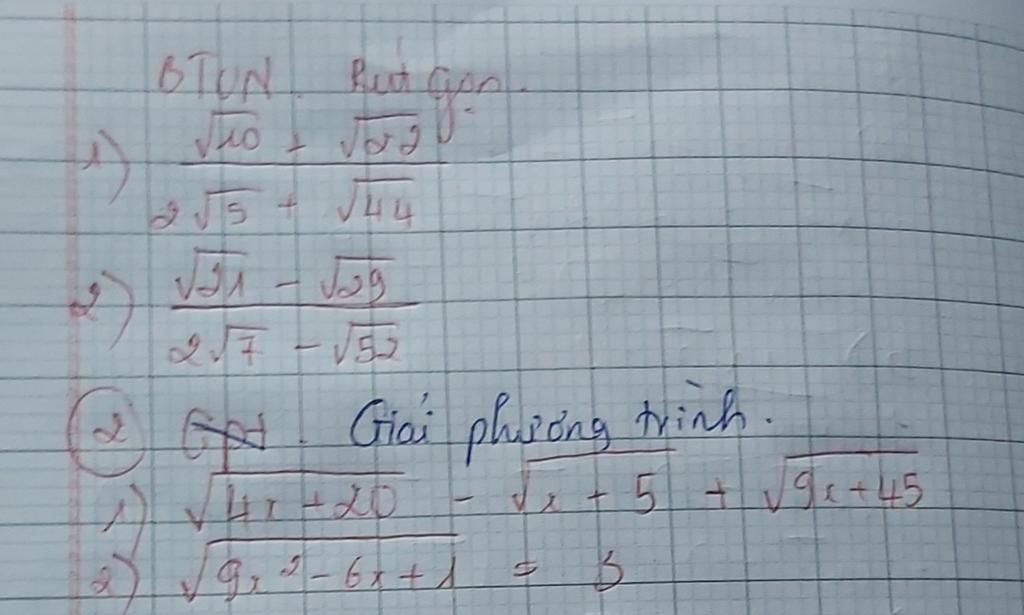 BTVN. Rút gọn.
1) (√10 + √22) / (2√5 + √44)
2) (√21 - √39) / (2√7 - √52)
② Giải phương trình.
1) √(4x + 20) - √(x + 5) + √(9x + 45)
2) √(9x² - 6x + 1) = 5